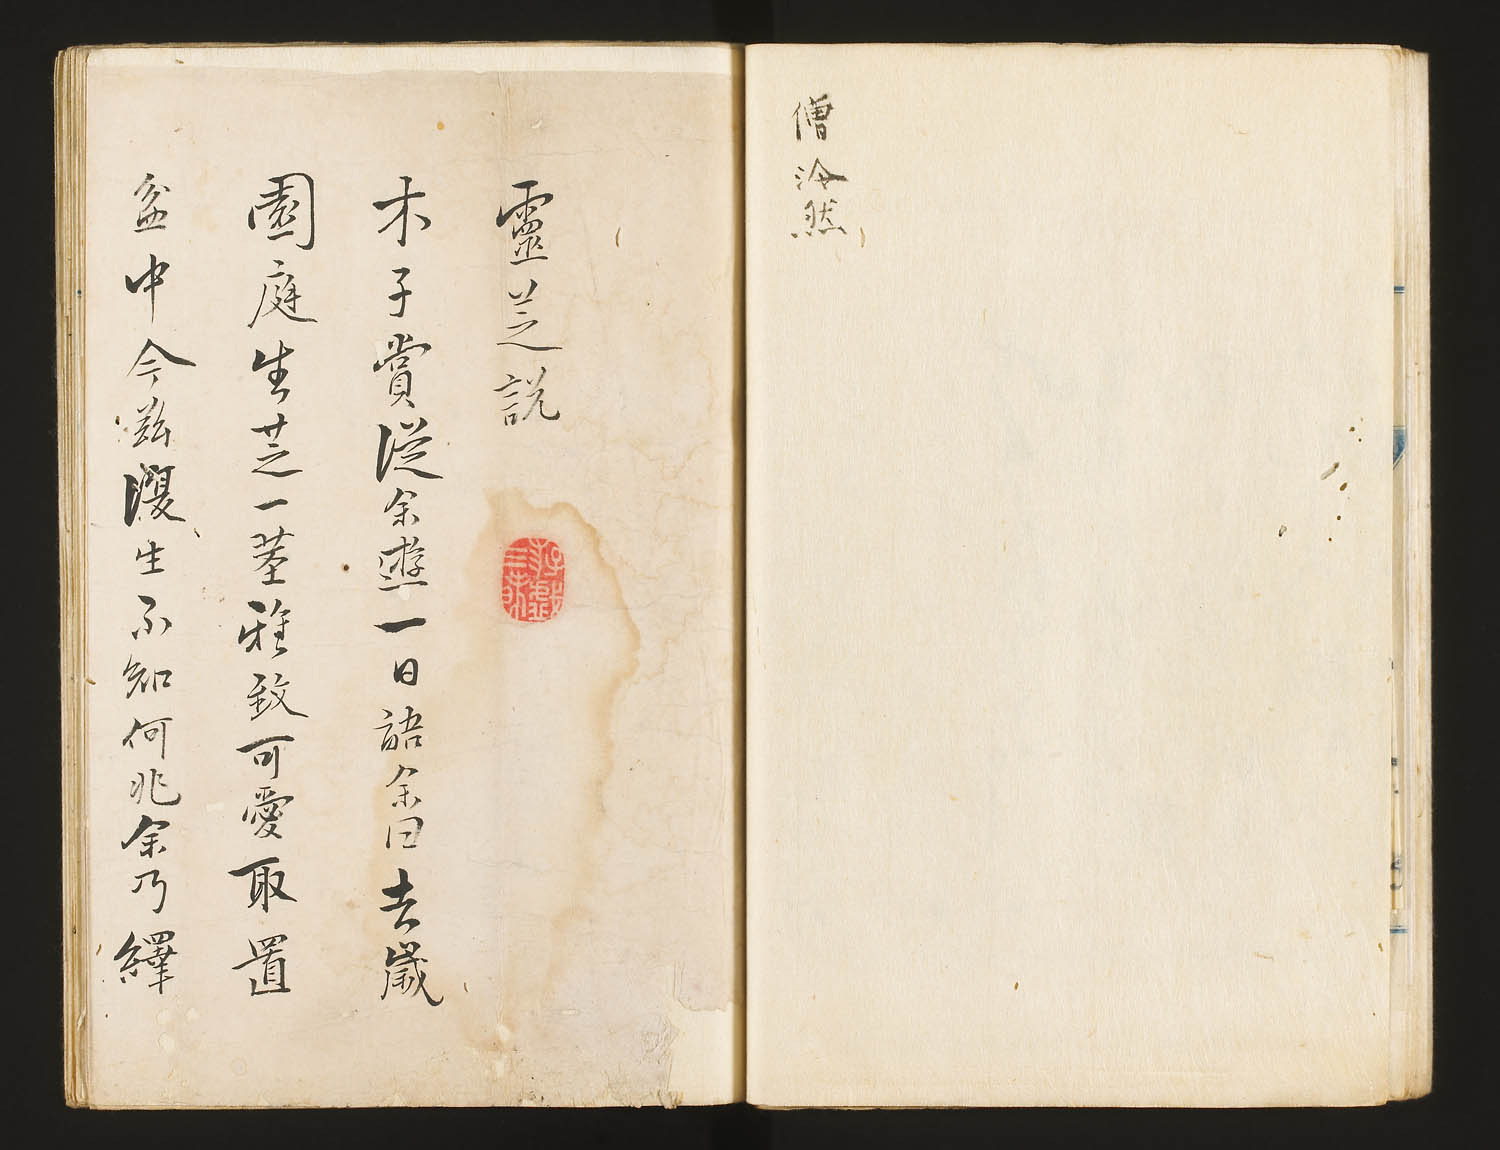 僧泠然
靈芝説
木子賞從余遊一日語余曰去歲
園庭生芝一莖雅致可愛取置
盆中今茲復生不知何兆余乃繹